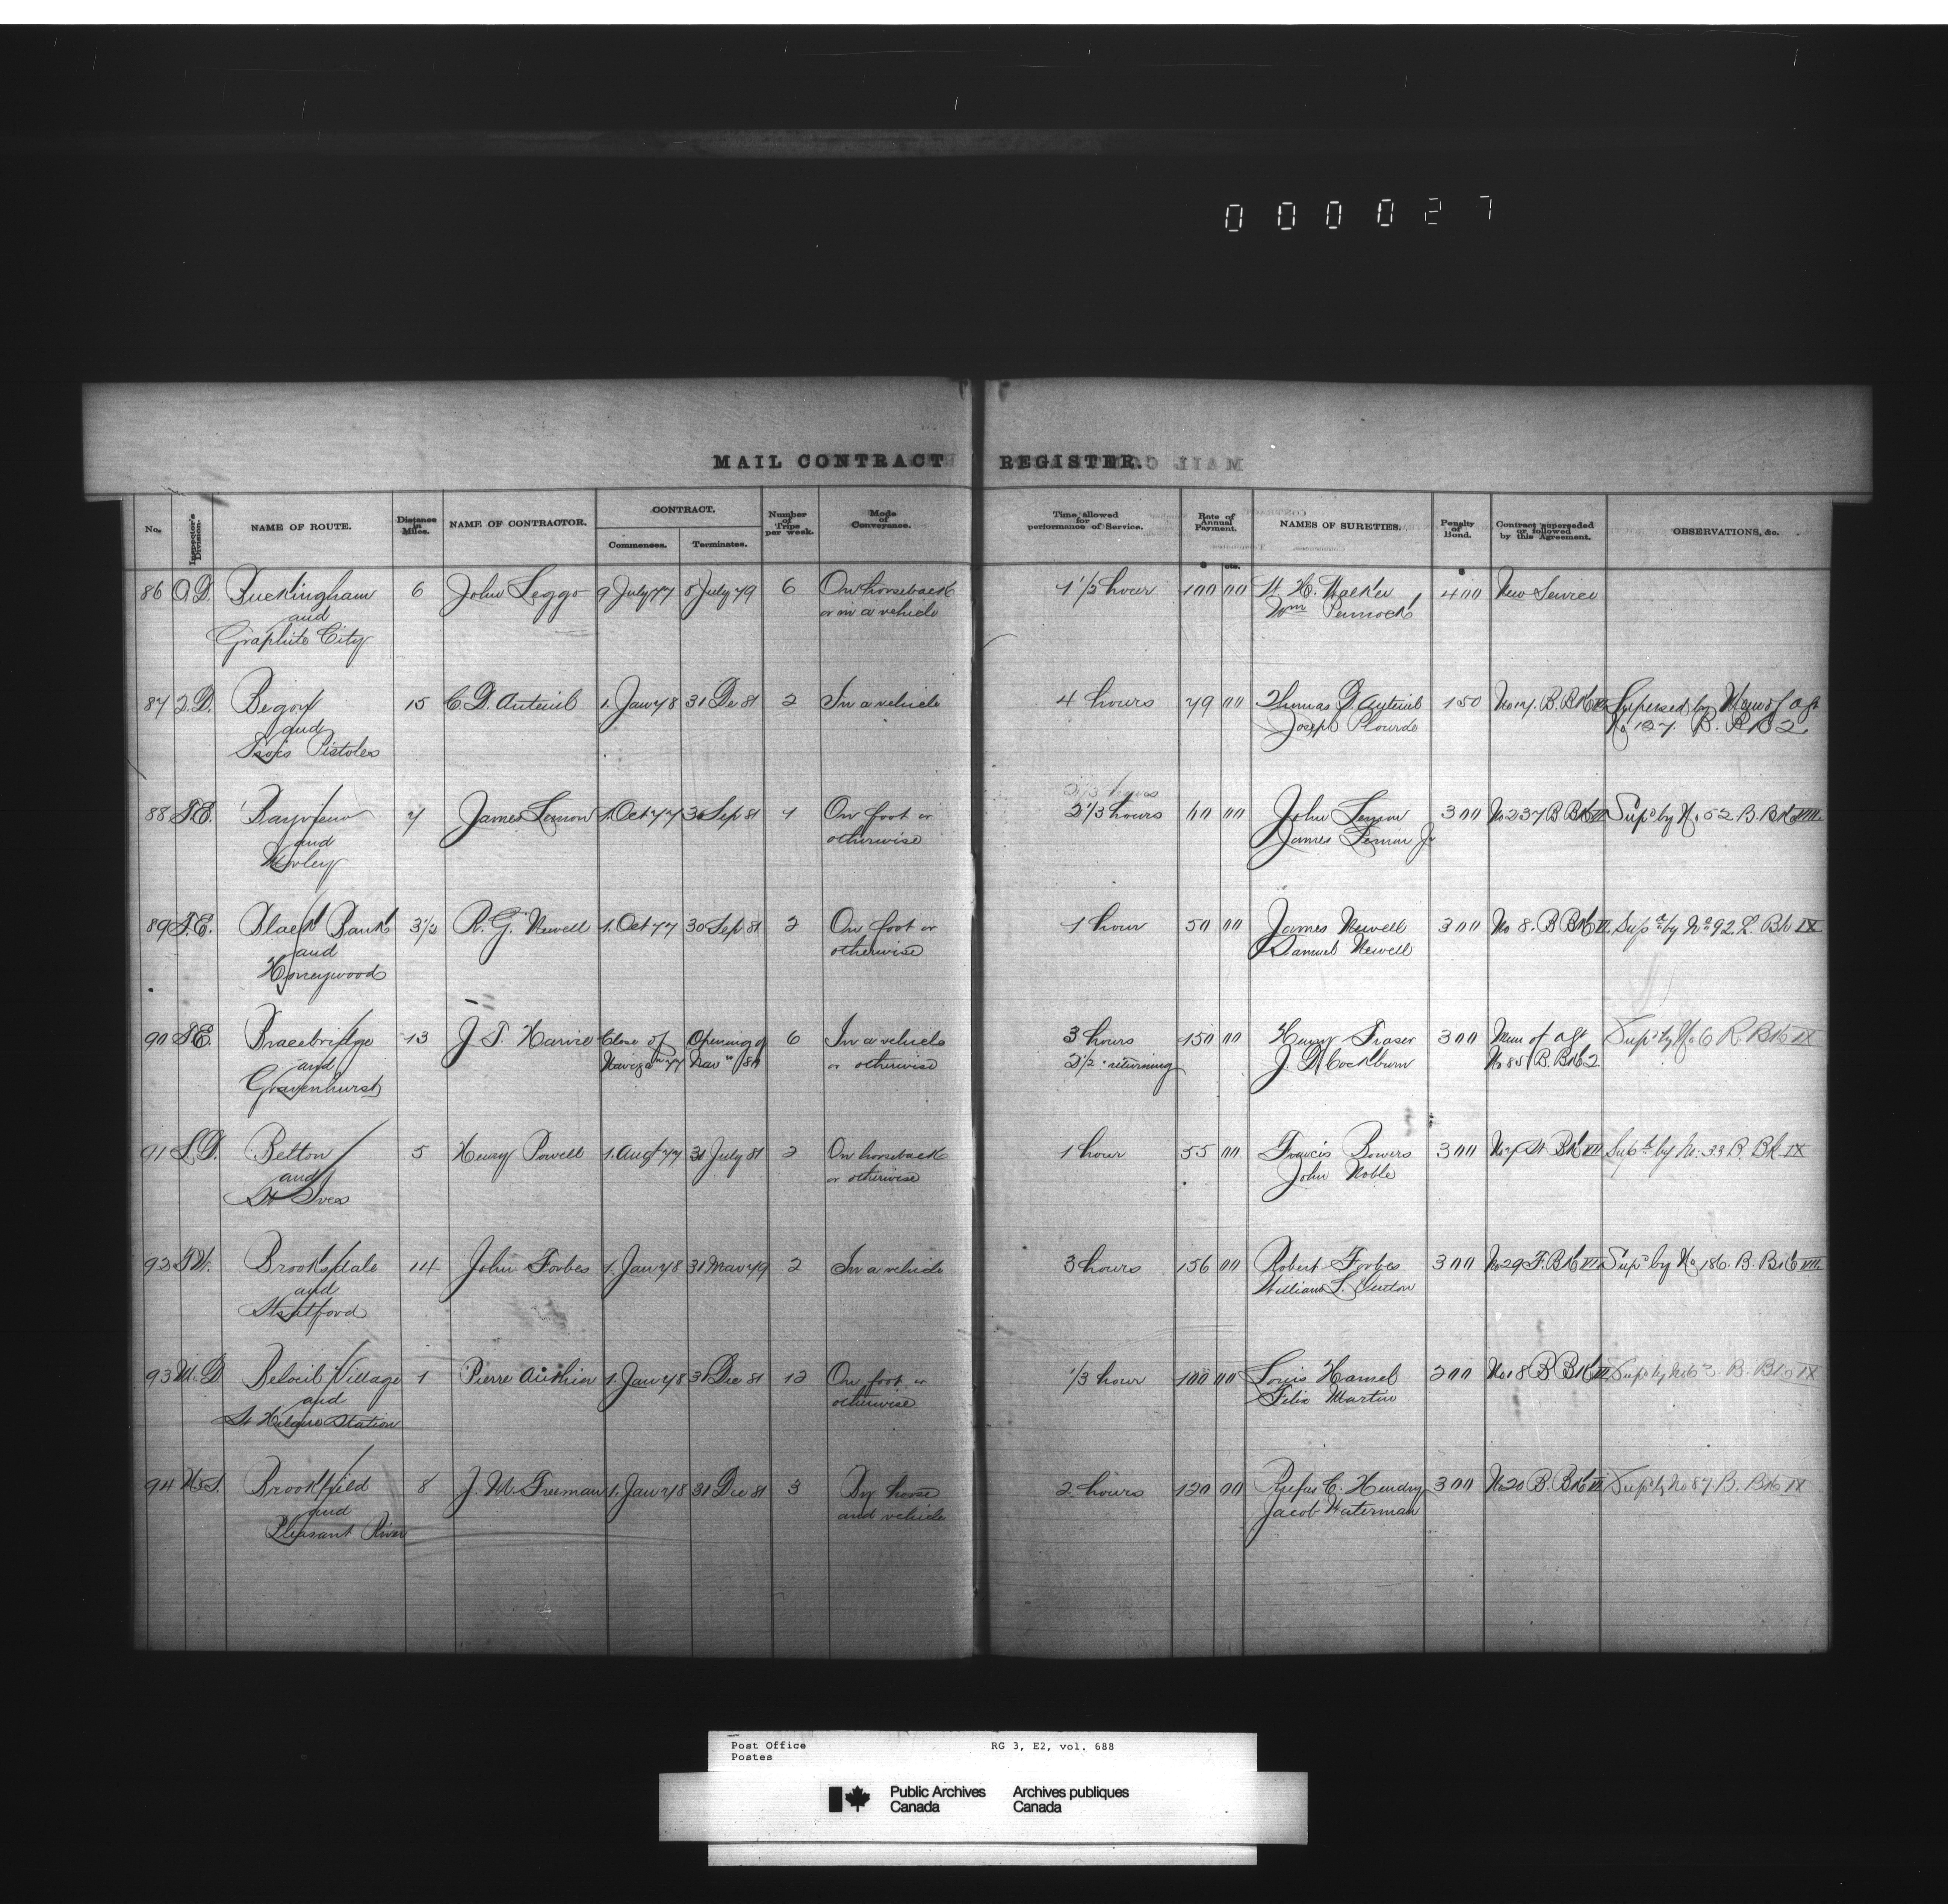 000027
MAIL CONTRACT REGISTER.
No. Inspector's Division. NAME OF ROUTE. Distance in Miles. NAME OF CONTRACTOR. CONTRACT. Commences. Terminates. Number of Trips per week. Mode of Conveyance. Time allowed for performance of Service. Rate of Annual Payment. NAMES OF SURETIES. Penalty of Bond. Contract superseded or followed by this Agreement. OBSERVATIONS, &c.
$ cts. $
86 O.D. Buckingham 6 John Leggo 9 July 77 8 July 79 6 On horseback 1 1/2 hour 100 00 W. H. Walker 400 New Service
and or in a vehicle Wm Pennock
Graphite City
87 Q.D. Begon 15 C. D. Auteuil 1. Jan 78 31 De 81 2 In a vehicle 4 hours 79 00 Thomas D. Auteuil 150 No 17. B. Bk Supersed by Mem of agt
and Joseph Plourde No 127. B. Bk 2
Trois Pistoles
88 T.E. Bayview 7 James Lemon 1. Oct 77 30 Sep 81 1 On foot or 2 1/3 hours 60 00 John Lemon 300 No 237 B Bk VII Supd by No 52 B. Bk VIII
and otherwise James Lemon Jr
Morley
89 T.E. Black Bank 3 1/2 R. G. Newell 1. Oct 77 30 Sep 81 2 On foot or 1 hour 50 00 James Newell 300 No 8. B Bk VI Supd by No 92. B. Bk IX
and otherwise Samuel Newell
Honeywood
90 T.E. Bracebridge 13 J. T. Harvie Close of Opening of 6 In a vehicle 3 hours 150 00 Henry Fraser 300 Mem of agt Supd by No 6 B. Bk IX
and Navigatn 77 Navn or otherwise 2 1/2 " returning J. D. Cockburn No 85 B. Bk 2
Gravenhurst
91 L.D. Belton 5 Henry Powell 1. Augt 77 31 July 81 2 On horseback 1 hour 55 00 Francis Bowers 300 No 7 St Bk VII Supd by No. 33 B. Bk IX
and or otherwise John Noble
St Ives
92 T.W. Brooksdale 14 John Forbes 1. Jan 78 31 Mar 79 2 In a vehicle 3 hours 156 00 Robert Forbes 300 No 29 F. Bk VII Supd by No 186. B. Bk VIII
and William L. Sutton
Stratford
93 M.D. Beloeil Village 1 Pierre Authier 1. Jan 78 31 Dec 81 12 On foot or 1/3 hour 100 00 Louis Hamel 200 No 18 B Bk VII Supd by No 63. B. Bk IX
and otherwise Felix Martin
St Hilaire Station
94 N.S. Brookfield 8 J. W. Freeman 1. Jan 78 31 Dec 81 3 By horse 2 hours 120 00 Rufus C. Hendry 300 No 20 B. Bk VII Supd by No 87. B. Bk IX
and and vehicle Jacob Waterman
Pleasant River
Post Office RG 3, E2, vol. 688
Postes
Public Archives Archives publiques
Canada Canada